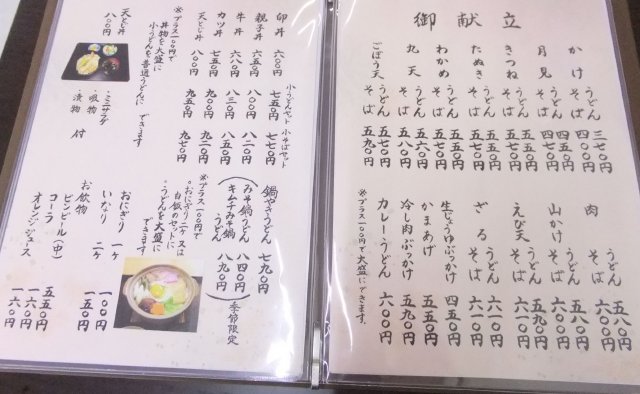 御献立
かけ うどん 三七〇円
そば 四〇〇円
月見 うどん 四五〇円
そば 四七〇円
きつね うどん
そば
たぬき うどん
そば
わかめ うどん
そば
丸天 うどん
そば
ごぼう天 うどん
そば 五九〇円
肉 うどん 五八〇円
そば 六〇〇円
山かけ うどん 五八〇円
そば 六〇〇円
えび天 うどん 五九〇円
そば 六一〇円
ざる うどん
そば
生じょうゆぶっかけ 四五〇円
かまあげ 五五〇円
冷し肉ぶっかけ 六八〇円
カレーうどん 六七〇円
※プラス一〇〇円で大盛にできます。
小うどんセット 小そばセット
卵丼 六〇〇円 七五〇円 七七〇円
親子丼 六五〇円 八〇〇円 八二〇円
牛丼 六八〇円 八三〇円 八五〇円
カツ丼 七五〇円 九〇〇円 九二〇円
天とじ丼 八〇〇円 九五〇円 九七〇円
※プラス一〇〇円で
丼物を大盛に
小うどんを普通うどんに できます
天とじ丼
八〇〇円
・ミニサラダ
・吸物
・漬物 付
鍋やきうどん 七九〇円
みそ鍋うどん 八四〇円
キムチみそ鍋うどん 八九〇円
(季節限定)
※プラス一〇〇円で
○おにぎり二ヶ又は
白飯のセットに
○うどんを大盛に
できます
おにぎり 一ヶ 一〇〇円
いなり 二ヶ 一五〇円
お飲物
ビンビール(中) 五五〇円
コーラ 一六〇円
オレンジジュース 一六〇円